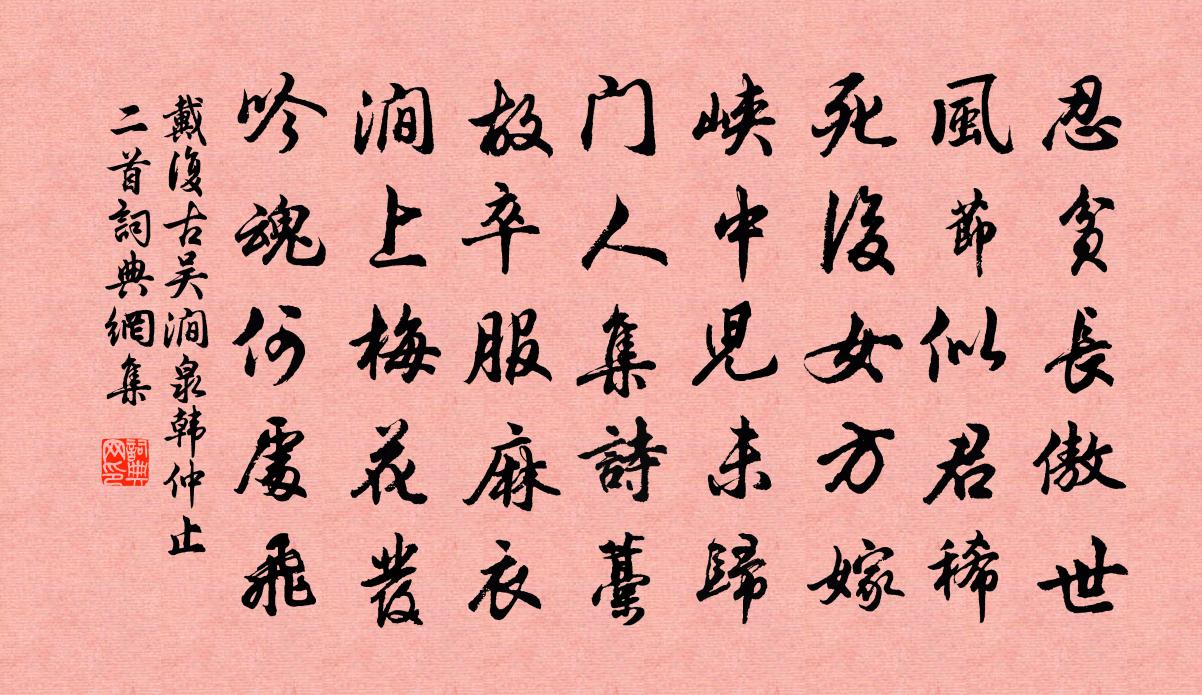 忍貧長傲世
風節似君稀
死後女方嫁
峽中児未歸
门人集詩藁
故卒服麻衣
澗上梅花發
吟魂何處飛
戴復古吴澗泉韩仲止
二首詞典網集
詞典
网印